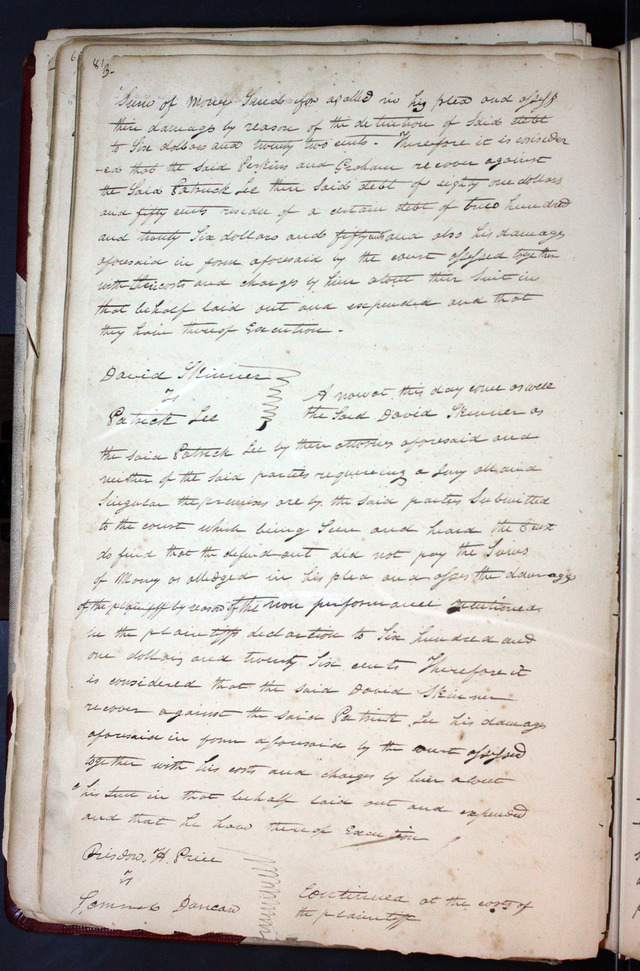 Sum of Money Sued for as alled in his plea and assess
their damage by reason of the detention of said debt
to Six dollars and twenty two cents - Therefore it is consider
-ed that the said Perkins and Graham recover against
the Said Patrick Lee their Said debt of eighty one dollars
and fifty cents residue of a certain debt of two hundred
and twenty Six dollars and fifty cents and also his damage
aforesaid in form aforesaid by the court assessed together
with their costs and charges by him about their Suit in
that behalf laid out and expended and that
they have thereof Execution -
David Skinner
vs
Patrick Lee
A now at this day come as well
the Said David Skinner as
the said Patrick Lee by their attornies aforesaid and
neither of the said parties requireing a Jury all and
Singular the premises are by the said parties Submitted
to the court which being Seen and heard the Court
do find that the defendant did not pay the Sums
of Money as alledged in his plea and asses the damage
of the plaintiff by reason of the non performance
in the plaintiffs declartion to Six hundred and
one dollars and twenty Six cents Therefore it
is considered that the said David Skinner
recover against the said Patrick Lee his damage
aforesaid in form aforesaid by the court assessed
together with his costs and charges by him about
his Suit in that behalf laid out and expended
and that he have thereof Execution
H. Price
vs
Duncan
Continued at the cost of
the plaintiff